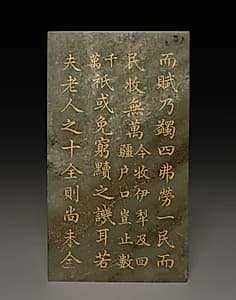 而賦乃蠲四弗勞一民而
民收無萬今收伊犁及回疆户口豈止數
千萬祇或免窮黷之譏耳若
夫老人之十全則尚未全